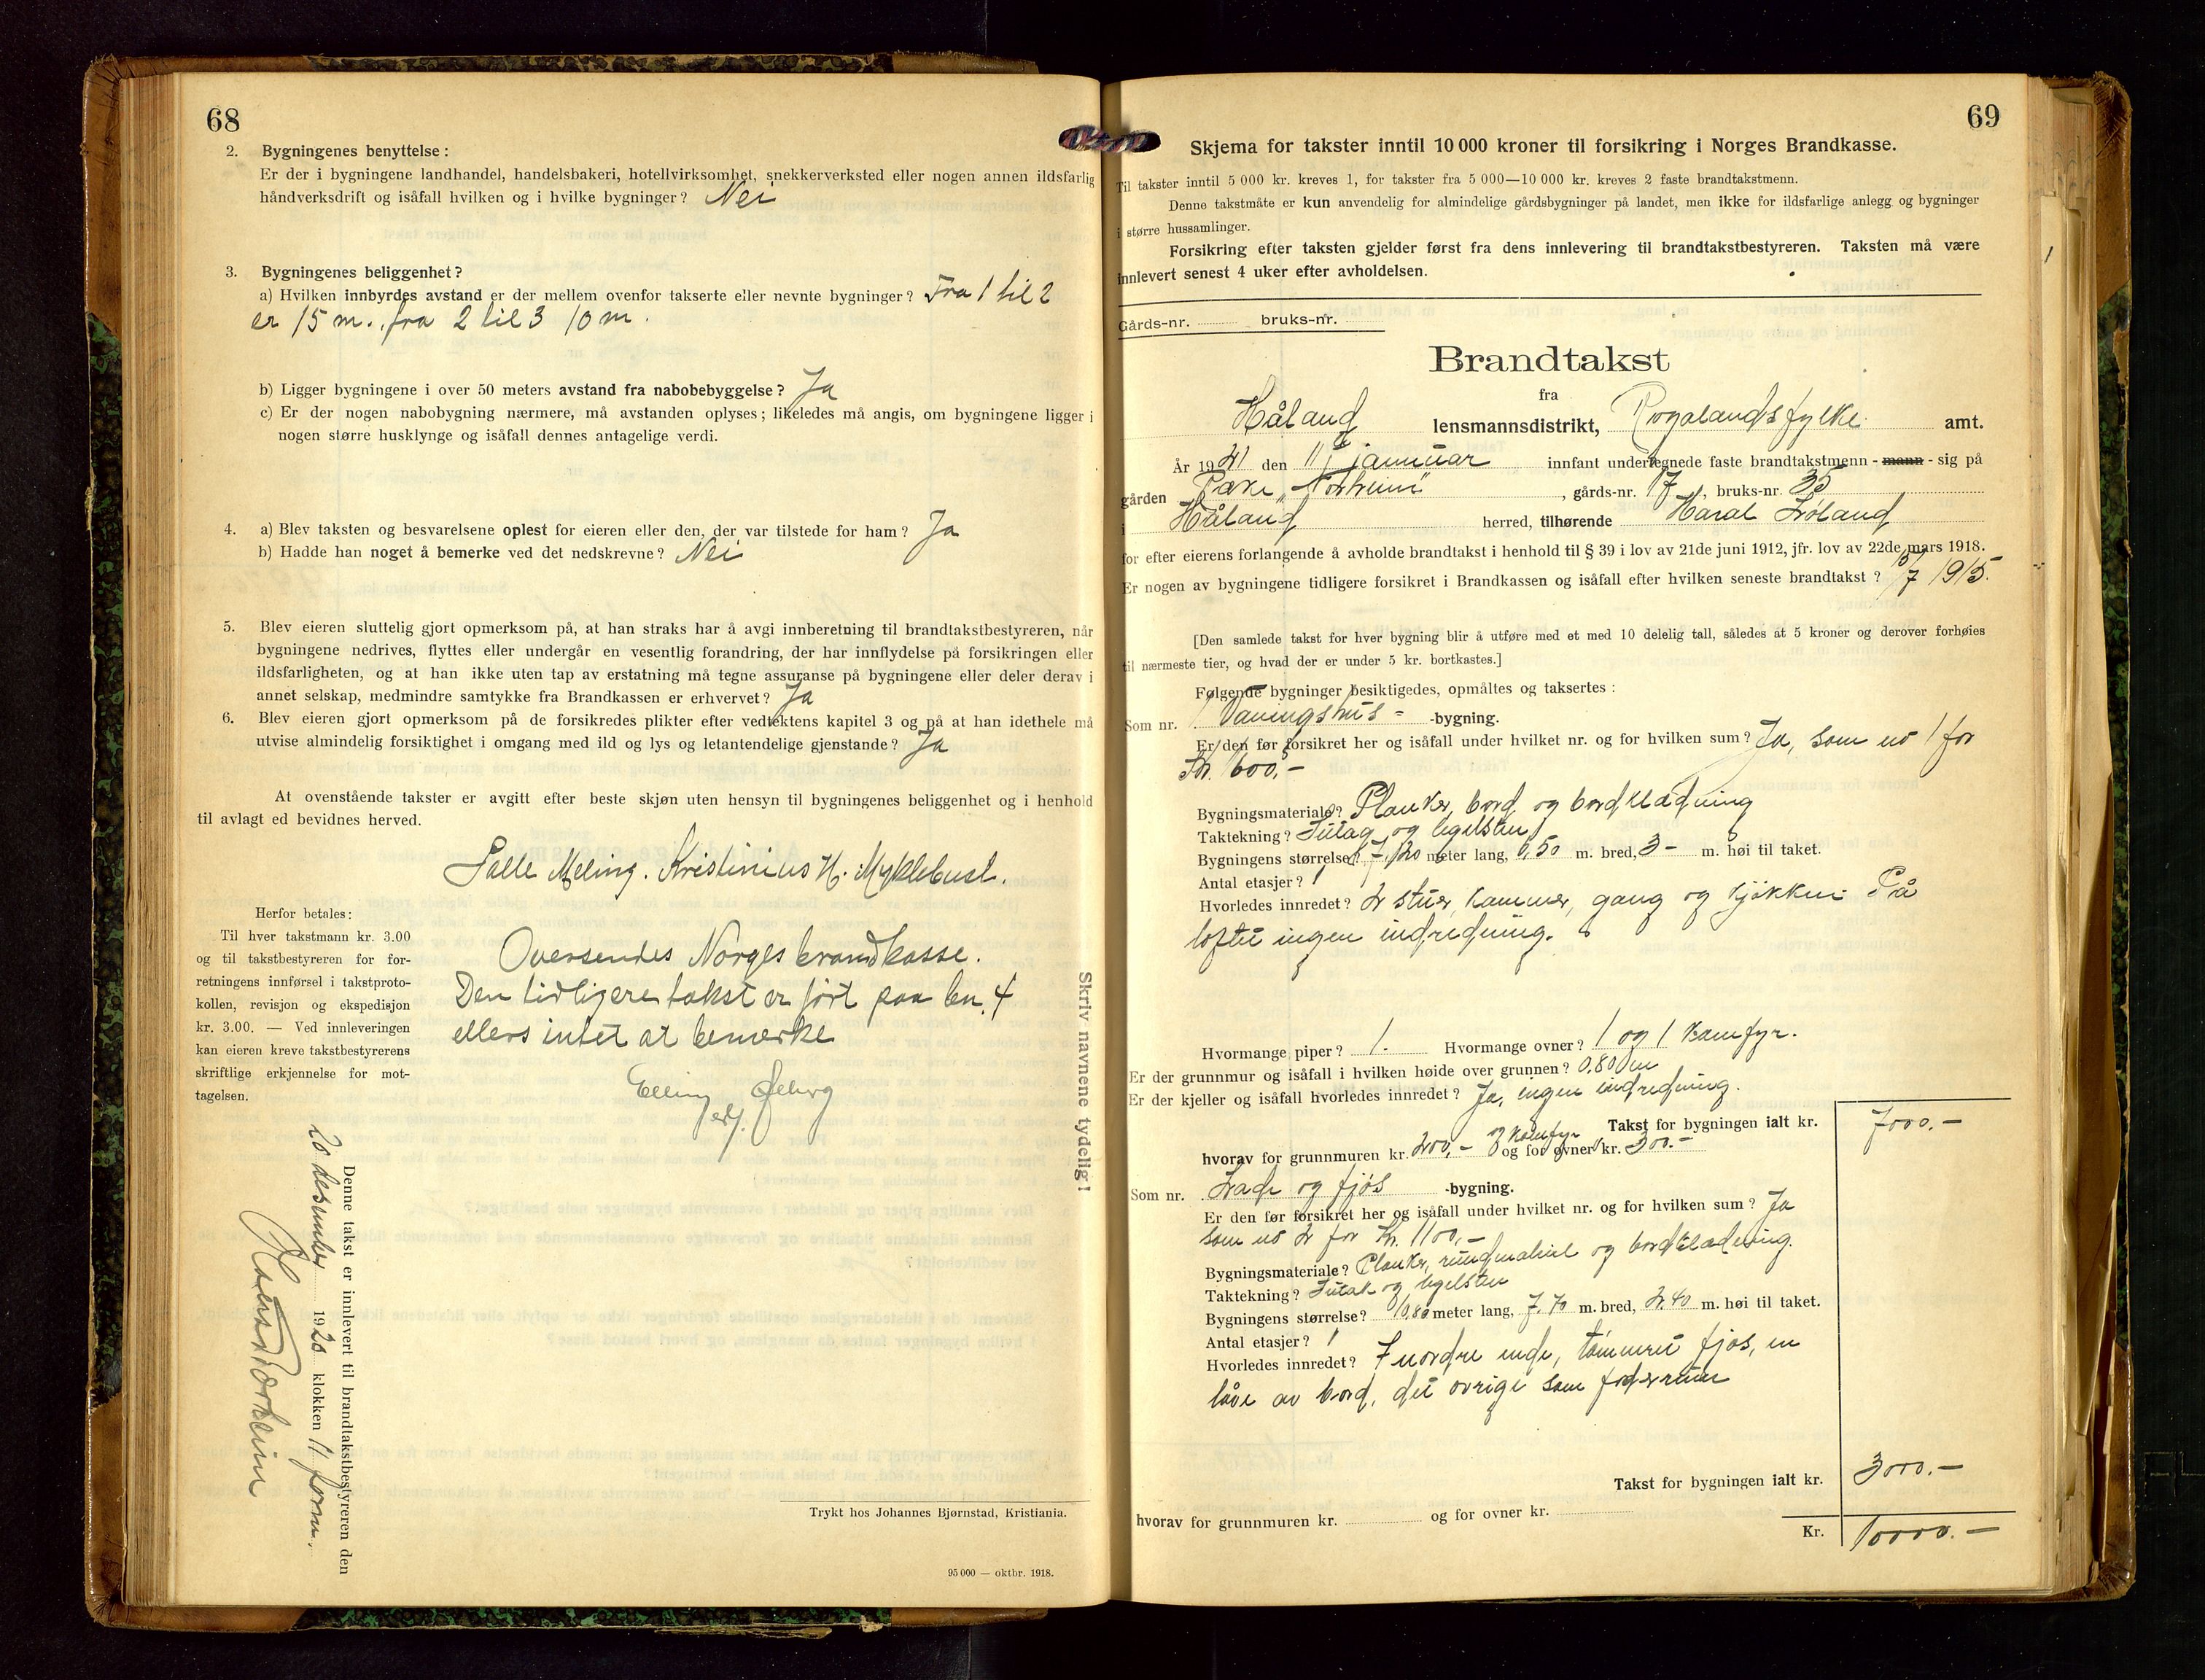 68
2. Bygningenes benyttelse:
Er der i bygningene landhandel, handelsbakeri, hotellvirksomhet, snekkerverksted eller nogen annen ildsfarlig
håndverksdrift og isåfall hvilken og i hvilke bygninger? Nei
3. Bygningenes beliggenhet?
a) Hvilken innbyrdes avstand er der mellem ovenfor takserte eller nevnte bygninger? Fra 1 til 2
er 15 m., fra 2 til 3 10 m.
b) Ligger bygningene i over 50 meters avstand fra nabobebyggelse? Ja
c) Er der nogen nabobygning nærmere, må avstanden oplyses; likeledes må angis, om bygningene ligger i
nogen større husklynge og isåfall dennes antagelige verdi.
4. a) Blev taksten og besvarelsene oplest for eieren eller den, der var tilstede for ham? Ja
b) Hadde han noget å bemerke ved det nedskrevne? Nei
5. Blev eieren sluttelig gjort opmerksom på, at han straks har å avgi innberetning til brandtakstbestyreren, når
bygningene nedrives, flyttes eller undergår en vesentlig forandring, der har innflydelse på forsikringen eller
ildsfarligheten, og at han ikke uten tap av erstatning må tegne assuranse på bygningene eller deler derav i
annet selskap, medmindre samtykke fra Brandkassen er erhvervet? Ja
6. Blev eieren gjort opmerksom på de forsikredes plikter efter vedtektens kapitel 3 og på at han idethele må
utvise almindelig forsiktighet i omgang med ild og lys og letantendelige gjenstande? Ja
At ovenstående takster er avgitt efter beste skjøn uten hensyn til bygningenes beliggenhet og i henhold
til avlagt ed bevidnes herved.
Salle Meling. Kristinius H. Myklebust.
Herfor betales:
Til hver takstmann kr. 3.00
og til takstbestyreren for for-
retningens innførsel i takstproto-
kollen, revisjon og ekspedisjon
kr. 3.00. — Ved innleveringen
kan eieren kreve takstbestyrerens
skriftlige erkjennelse for mot-
tagelsen.
Oversendes Norges brandkasse.
Den tidligere takst er ført paa bn. 4
ellers intet at bemerke
Elling
Skriv navnene tydelig!
Denne takst er innlevert til brandtakstbestyreren den
20 desember 1920 klokken 11 form.
Trykt hos Johannes Bjørnstad, Kristiania.
95 000 — oktbr. 1918.
69
Skjema for takster inntil 10 000 kroner til forsikring i Norges Brandkasse.
Til takster inntil 5 000 kr. kreves 1, for takster fra 5 000—10 000 kr. kreves 2 faste brandtakstmenn.
Denne takstmåte er kun anvendelig for almindelige gårdsbygninger på landet, men ikke for ildsfarlige anlegg og bygninger
i større hussamlinger.
Forsikring efter taksten gjelder først fra dens innlevering til brandtakstbestyreren. Taksten må være
innlevert senest 4 uker efter avholdelsen.
Gårds-nr. bruks-nr.
Brandtakst
fra
Håland lensmannsdistrikt, Rogalands fylke amt.
År 1921 den 11te januar innfant undertegnede faste brandtakstmenn - mann - sig på
gården "Norheim", gårds-nr. 17, bruks-nr. 35
i Håland herred, tilhørende
for efter eierens forlangende å avholde brandtakst i henhold til § 39 i lov av 21de juni 1912, jfr. lov av 22de mars 1918.
Er nogen av bygningene tidligere forsikret i Brandkassen og isåfall efter hvilken seneste brandtakst? 10/7 1915.
[Den samlede takst for hver bygning blir å utføre med et med 10 delelig tall, således at 5 kroner og derover forhøies
til nærmeste tier, og hvad der er under 5 kr. bortkastes.]
Følgende bygninger besiktigedes, opmåltes og taksertes:
Som nr. 1 Vaningshus - -bygning.
Er den før forsikret her og isåfall under hvilket nr. og for hvilken sum? Ja, som no 1 for
Kr. 1600,-
Bygningsmateriale? Planker, bord og bordklædning
Taktekning? Sutag og teglsten
Bygningens størrelse? meter lang, 6,50 m. bred, 3 - m. høi til taket.
Antal etasjer? 1
Hvorledes innredet? 2 stuer, kammer, gang og kjøkken På
loftet ingen indredning.
Hvormange piper? 1. Hvormange ovner? 1 og 1 kamfyr.
Er der grunnmur og isåfall i hvilken høide over grunnen? 0,80 m
Er der kjeller og isåfall hvorledes innredet? Ja, ingen indredning.
Takst for bygningen ialt kr. 7000.-
hvorav for grunnmuren kr. 200,- og for ovner og komfyr kr. 300.-
Som nr. Lade og fjøs -bygning.
Er den før forsikret her og isåfall under hvilket nr. og for hvilken sum? Ja
som no 2 for Kr. 1100,-
Bygningsmateriale? Planker, rundmateriel og bordklædning.
Taktekning? Sutak og teglsten
Bygningens størrelse? 10,80 meter lang, 7.70 m. bred, 2.40 m. høi til taket.
Antal etasjer? 1
Hvorledes innredet? I nordre ende, tømmret fjøs, en
låve av bord, det øvrige som foderrum
Takst for bygningen ialt kr. 3000.-
hvorav for grunnmuren kr. og for ovner kr.
Kr. 10000.-